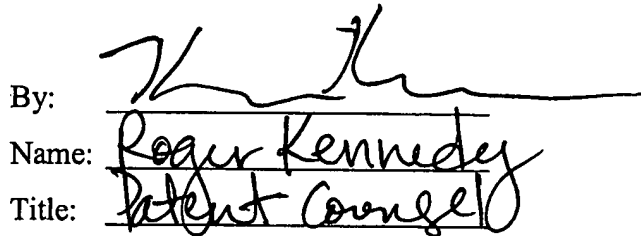 By:
Name: Roger Kennedy
Title: Patent Counsel